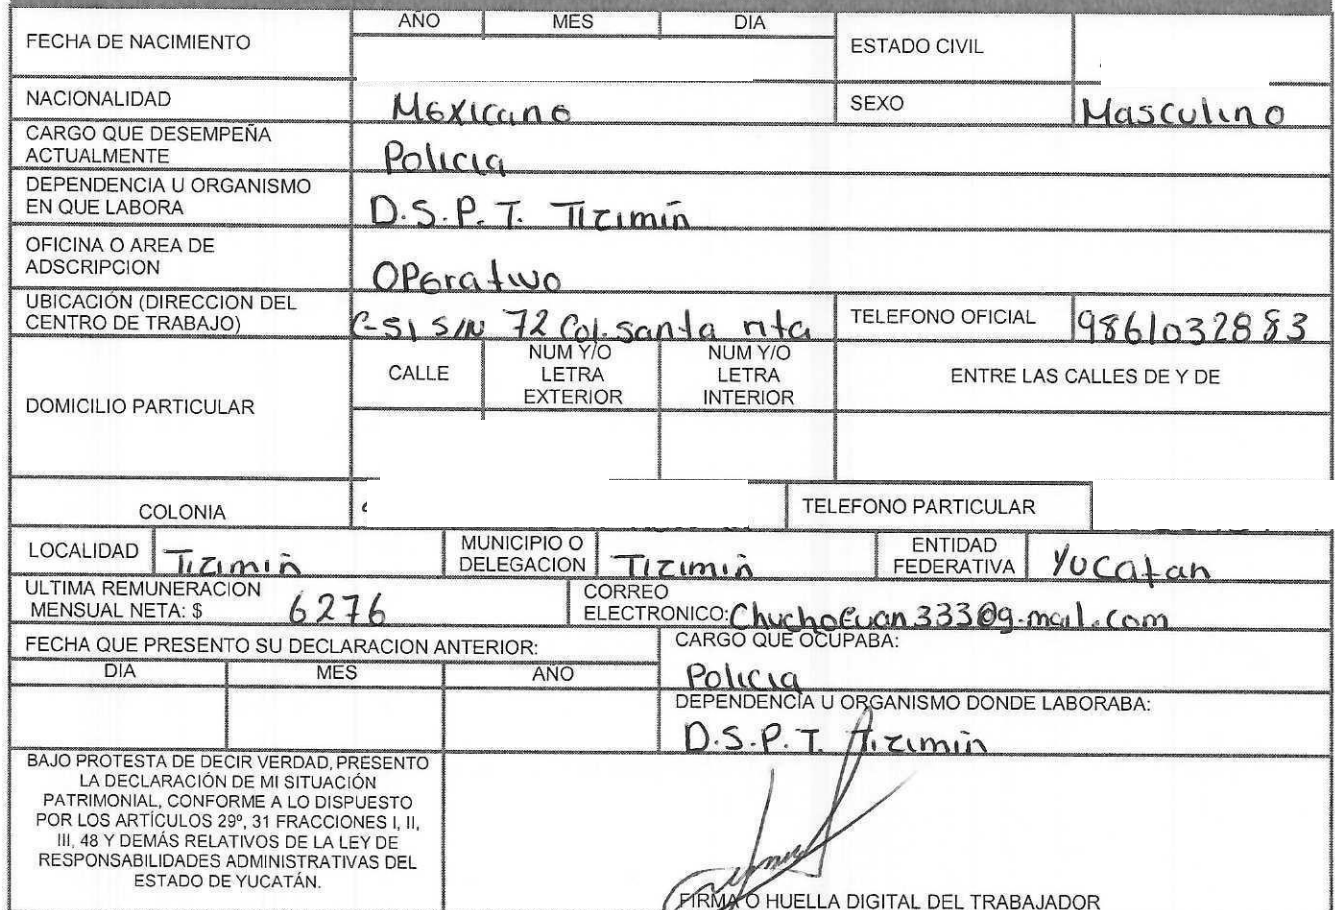 FECHA DE NACIMIENTO
AÑO MES DIA
ESTADO CIVIL
NACIONALIDAD Mexicano SEXO Masculino
CARGO QUE DESEMPEÑA
ACTUALMENTE Policia
DEPENDENCIA U ORGANISMO
EN QUE LABORA D.S.P.T. Tizimín
OFICINA O AREA DE
ADSCRIPCION Operativo
UBICACIÓN (DIRECCION DEL
CENTRO DE TRABAJO) C-51 S/N 72 Col. santa rita TELEFONO OFICIAL 9861032883
DOMICILIO PARTICULAR
CALLE
NUM Y/O
LETRA
EXTERIOR
NUM Y/O
LETRA
INTERIOR
ENTRE LAS CALLES DE Y DE
COLONIA TELEFONO PARTICULAR
LOCALIDAD Tizimin
MUNICIPIO O
DELEGACION Tizimin
ENTIDAD
FEDERATIVA Yucatan
ULTIMA REMUNERACION
MENSUAL NETA: $ 6276
CORREO
ELECTRONICO: ChuchoEuan333@g-mail.com
FECHA QUE PRESENTO SU DECLARACION ANTERIOR:
DIA MES AÑO
CARGO QUE OCUPABA:
Policia
DEPENDENCIA U ORGANISMO DONDE LABORABA:
D.S.P.T. Tizimín
BAJO PROTESTA DE DECIR VERDAD, PRESENTO
LA DECLARACIÓN DE MI SITUACIÓN
PATRIMONIAL, CONFORME A LO DISPUESTO
POR LOS ARTÍCULOS 29º, 31 FRACCIONES I, II,
III, 48 Y DEMÁS RELATIVOS DE LA LEY DE
RESPONSABILIDADES ADMINISTRATIVAS DEL
ESTADO DE YUCATÁN.
FIRMA O HUELLA DIGITAL DEL TRABAJADOR